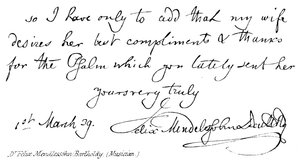 so I have only to add that my wife
desires her best compliments & thanks
for the Psalm which you lately sent her
yours very truly
1st March 39.
Felix Mendelssohn Bartholdy
Dr Felix Mendelssohn Bartholdy (Musician)